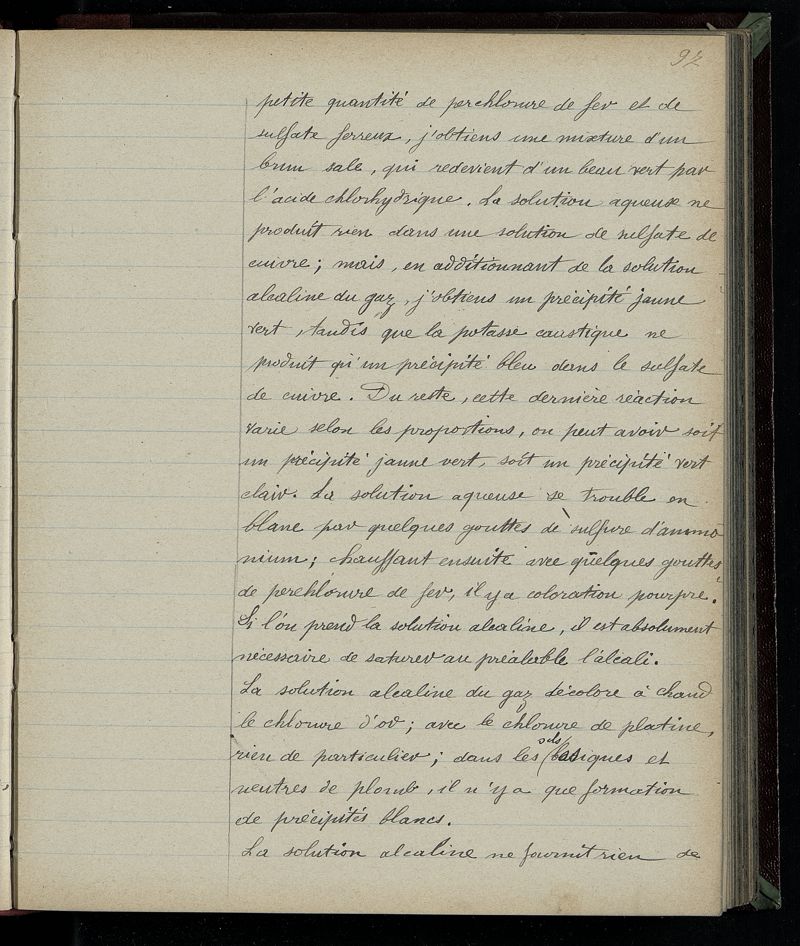 92
petite quantité de perchlorure de fer et de
sulfate ferreux, j'obtiens une mixture d'un
brun sale, qui redevient d'un beau vert par
l'acide chlorhydrique. La solution aqueuse ne
produit rien dans une solution de sulfate de
cuivre; mais, en additionnant de la solution
alcaline du gaz, j'obtiens un précipité jaune
vert, tandis que la potasse caustique ne
produit qu'un précipité bleu dans le sulfate
de cuivre. Du reste, cette dernière réaction
varie selon les proportions, on peut avoir soit
un précipité jaune vert, soit un précipité vert
clair. La solution aqueuse se trouble en
blanc par quelques gouttes de sulfure d'ammo
nium; chauffant ensuite avec quelques gouttes
de perchlorure de fer, il y a coloration pourpre.
Si l'on prend la solution alcaline, il est absolument
nécessaire de saturer au préalable l'alcali.
La solution alcaline du gaz décolore à chaud
le chlorure d'or; avec le chlorure de platine,
rien de particulier; dans les sels basiques et
neutres de plomb, il n'y a que formation
de précipités blancs.
La solution alcaline ne fournit rien de